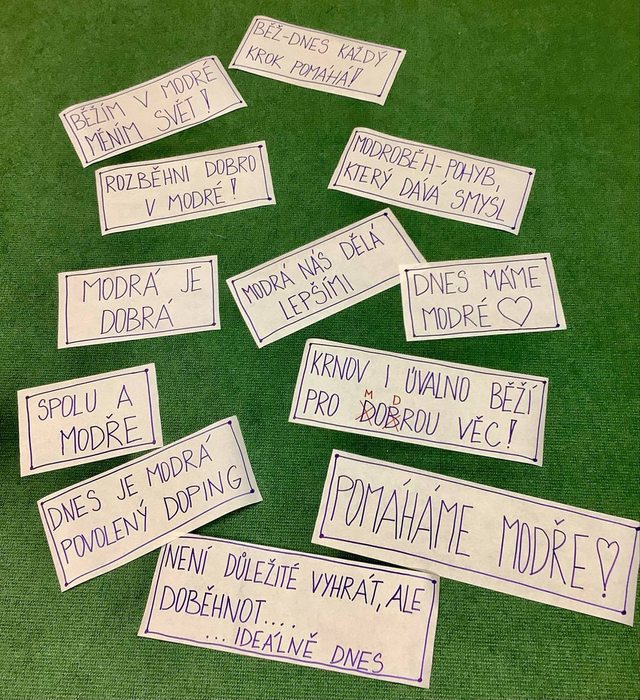 BĚŽ-DNES KAŽDÝ
KROK POMÁHÁ!
BĚŽÍM V MODRÉ
MĚNÍM SVĚT!
ROZBĚHNI DOBRO
V MODRÉ!
MODROBĚH-POHYB,
KTERÝ DÁVÁ SMYSL
MODRÁ JE
DOBRÁ
MODRÁ NÁS DĚLÁ
LEPŠÍMI
DNES MÁME
MODRÉ ♡
KRNOV I ÚVALNO BĚŽÍ
M D
PRO DOBROU VĚC!
SPOLU A
MODŘE
DNES JE MODRÁ
POVOLENÝ DOPING
POMÁHÁME MODŘE!
NENÍ DŮLEŽITÉ VYHRÁT, ALE
DOBĚHNOT....
...IDEÁLNĚ DNES